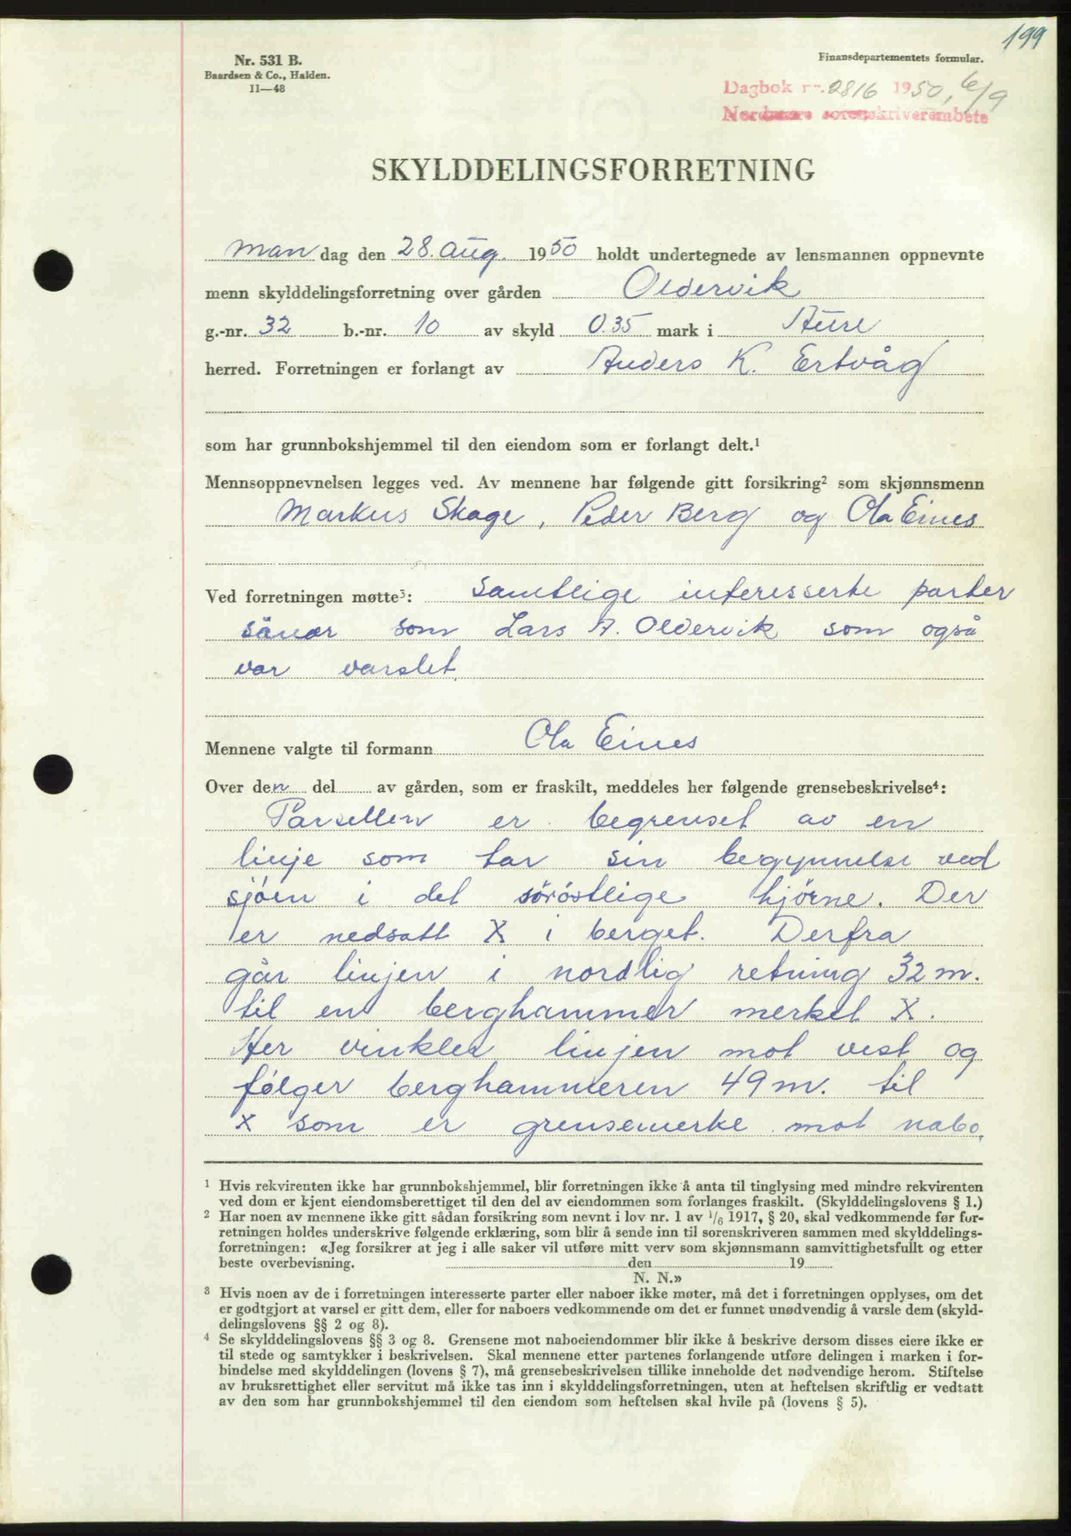 199
Nr. 531 B.
Baardsen & Co., Halden.
11—48
Finansdepartementets formular.
Dagbok nr. 2816 1950, 6/9
Nordmøre sorenskriverembete
SKYLDDELINGSFORRETNING
Man dag den 28. aug. 1950 holdt undertegnede av lensmannen oppnevnte
menn skylddelingsforretning over gården Oldervik
g.-nr. 32 b.-nr. 10 av skyld 0.35 mark i Aure
herred. Forretningen er forlangt av Anders K. Ertvåg
som har grunnbokshjemmel til den eiendom som er forlangt delt.¹
Mennsoppnevnelsen legges ved. Av mennene har følgende gitt forsikring² som skjønnsmenn
Markus Skage, Peder Berg og Ola Eines
Ved forretningen møtte³: samtlige interesserte parter
såner som Lars A. Oldervik som også
var varslet.
Mennene valgte til formann Ola Eines
Over den del av gården, som er fraskilt, meddeles her følgende grensebeskrivelse⁴:
Parsellen er begrenset av en
linje som tar sin begynnelse ved
sjøen i det sörøstlige hjörne. Der
er nedsatt X i berget. Derfra
går linjen i nordlig retning 32 m.
til en berghammer merket X.
Her vinkler linjen mot vest og
følger berghammeren 49 m. til
x som er grensemerke mot nabo.
¹ Hvis rekvirenten ikke har grunnbokshjemmel, blir forretningen ikke å anta til tinglysing med mindre rekvirenten
ved dom er kjent eiendomsberettiget til den del av eiendommen som forlanges fraskilt. (Skylddelingslovens § 1.)
² Har noen av mennene ikke gitt sådan forsikring som nevnt i lov nr. 1 av 1/6 1917, § 20, skal vedkommende før for-
retningen holdes underskrive følgende erklæring, som blir å sende inn til sorenskriveren sammen med skylddelings-
forretningen: «Jeg forsikrer at jeg i alle saker vil utføre mitt verv som skjønnsmann samvittighetsfullt og etter
beste overbevisning. den 19
N. N.»
³ Hvis noen av de i forretningen interesserte parter eller naboer ikke møter, må det i forretningen opplyses, om det
er godtgjort at varsel er gitt dem, eller for naboers vedkommende om det er funnet unødvendig å varsle dem (skyld-
delingslovens §§ 2 og 8).
⁴ Se skylddelingslovens §§ 3 og 8. Grensene mot naboeiendommer blir ikke å beskrive dersom disses eiere ikke er
til stede og samtykker i beskrivelsen. Skal mennene etter partenes forlangende utføre delingen i marken i for-
bindelse med skylddelingen (lovens § 7), må grensebeskrivelsen tillike inneholde det nødvendige herom. Stiftelse
av bruksrettighet eller servitut må ikke tas inn i skylddelingsforretningen, uten at heftelsen skriftlig er vedtatt
av den som har grunnbokshjemmel til den eiendom som heftelsen skal hvile på (lovens § 5).